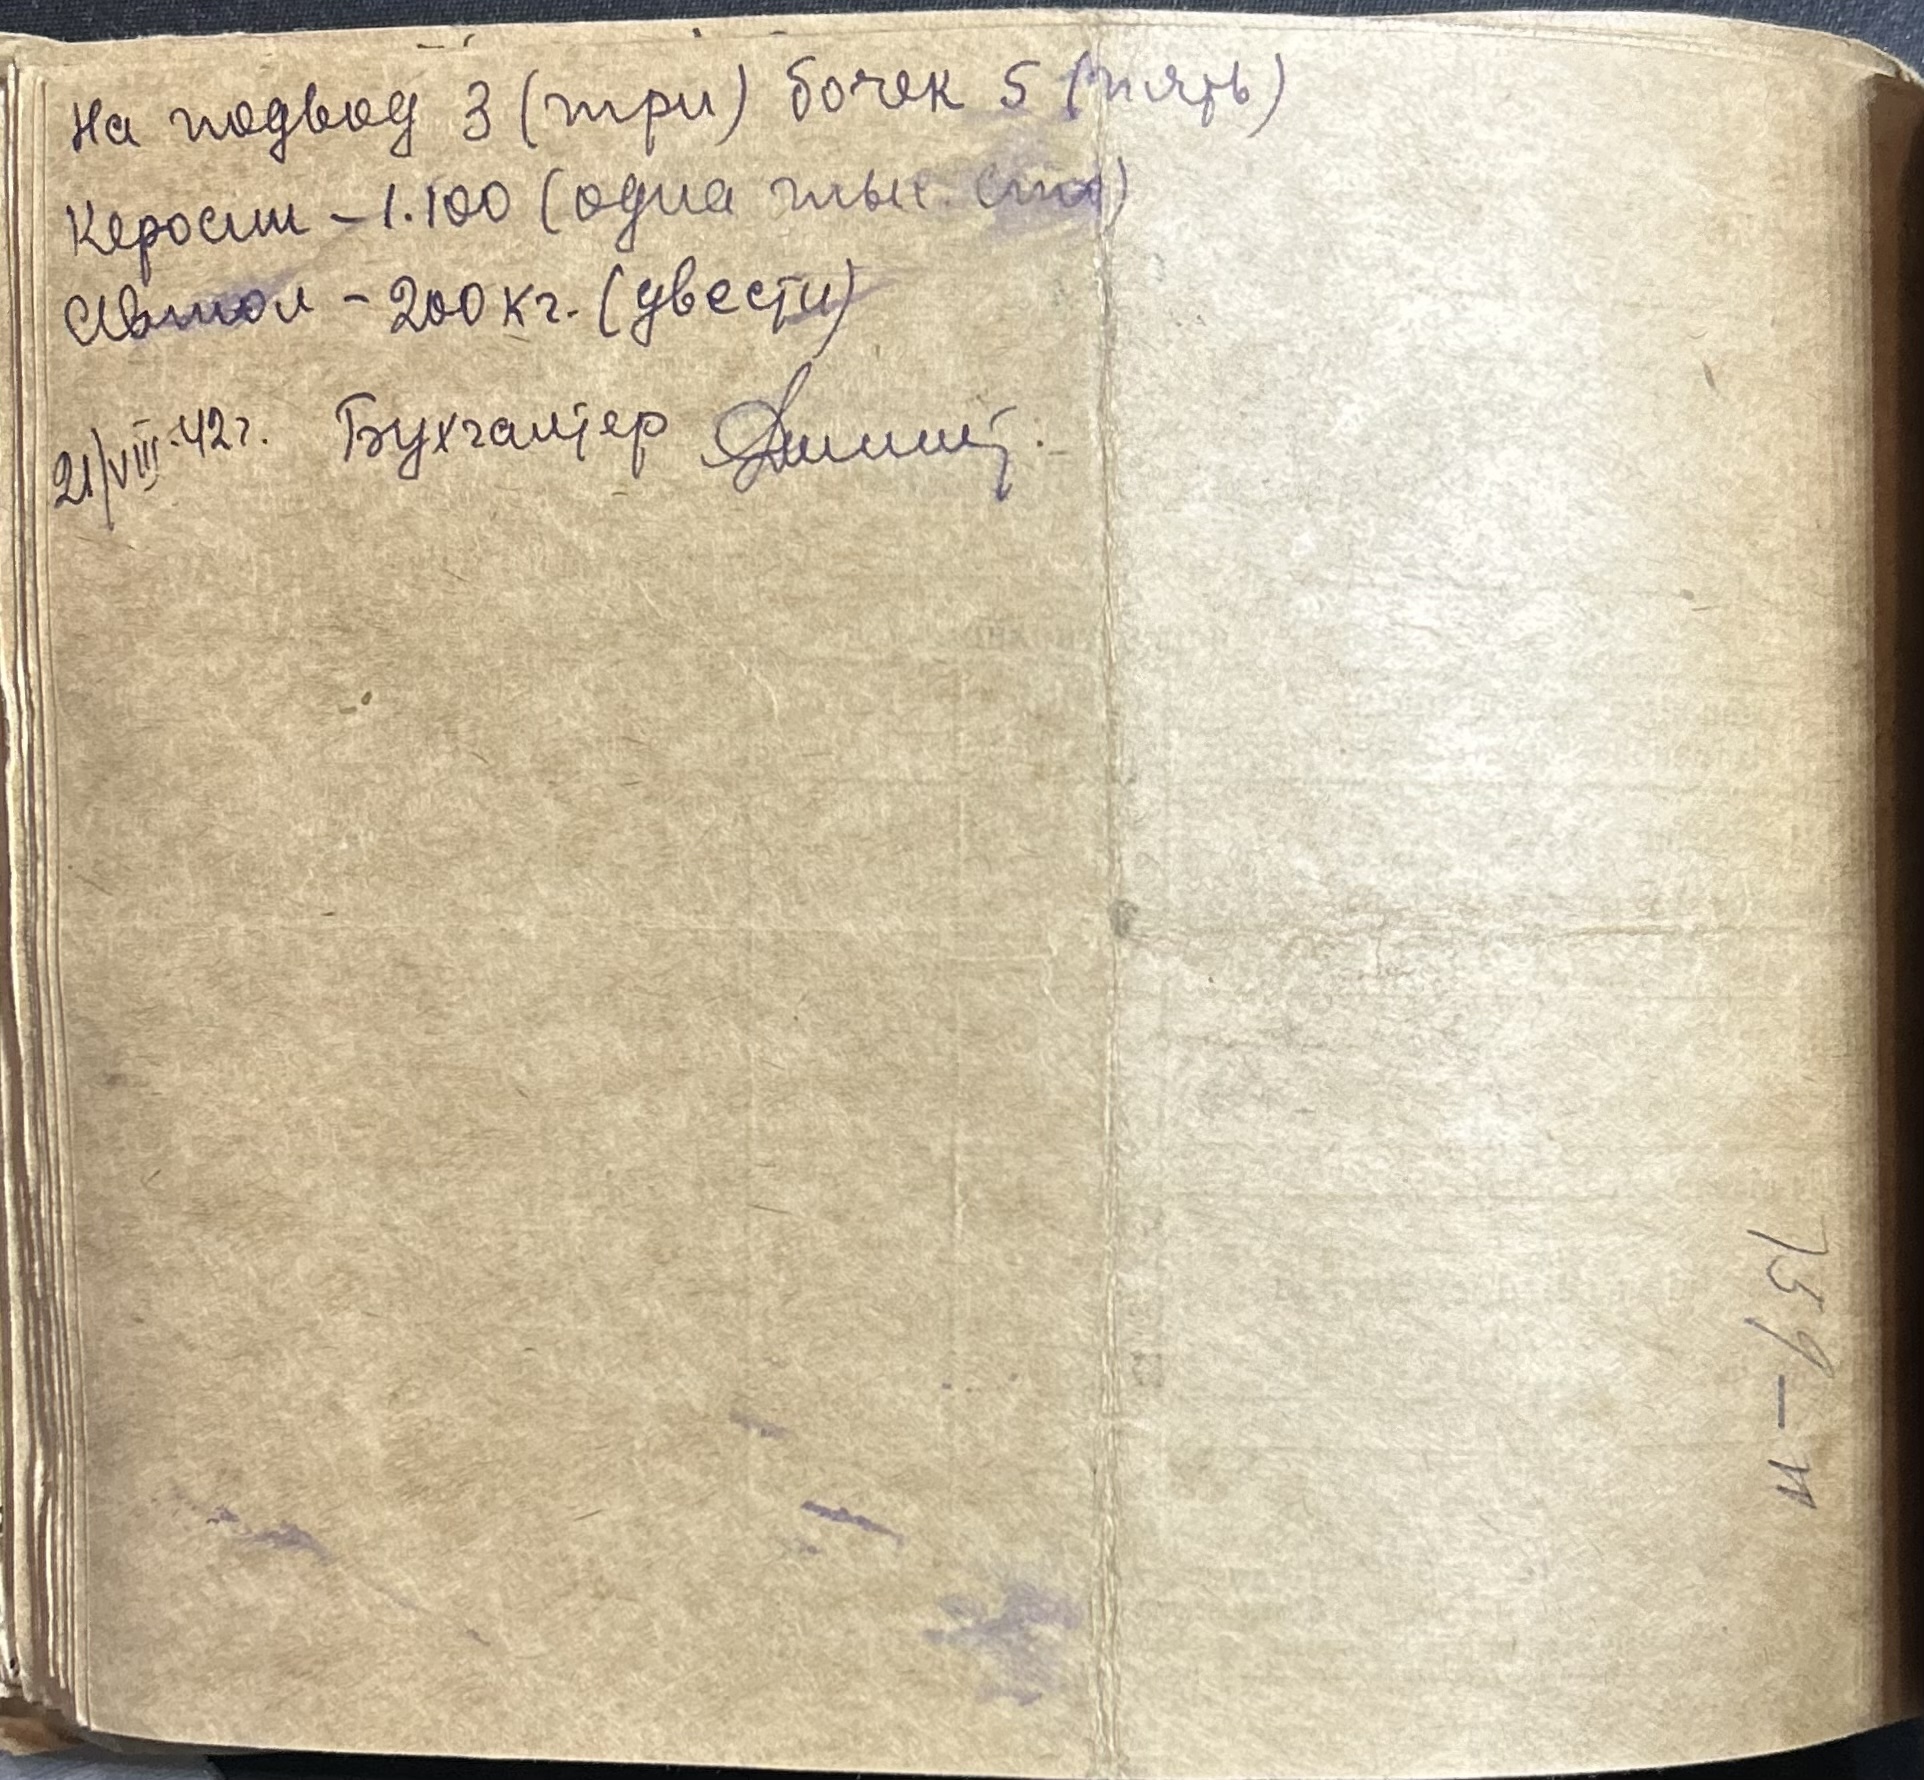 На подвод 3 (три) бочек 5 (пять)
Керосин – 1.100 (одна тыс. сто)
Автол – 200 кг. (двести)
21/VIII-42г. Бухгалтер
759 – м